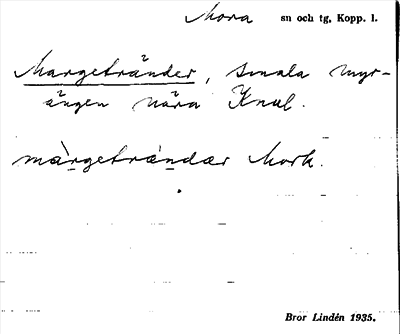 Mora sn och tg, Kopp. l.
Margetränder, smala myr-
ängen nära Knul.
màrgetrándar Mork.
Bror Lindén 1935.